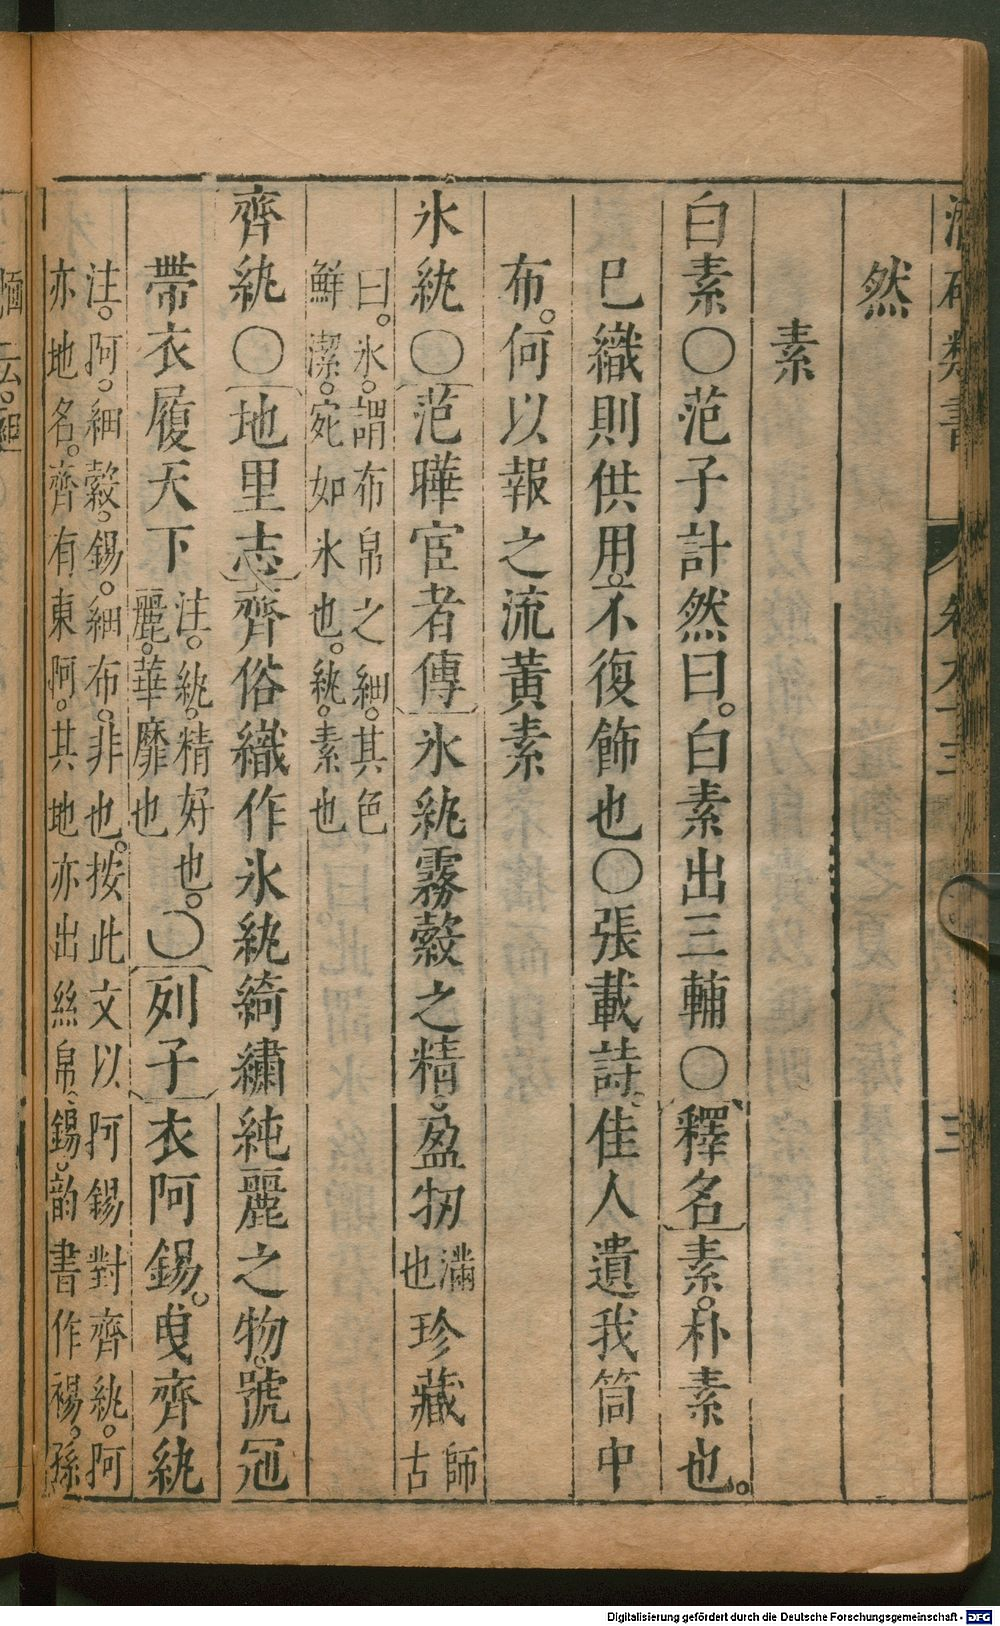 然
素
白素○范子計然曰。白素出三輔○釋名素。朴素也。
巳織則供用。不復飾也○張載詩。佳人遺我筒中
布。何以報之流黃素
氷紈○范曄宦者傳氷紈霧縠之精。盈牣滿也珍藏師古
曰。氷。謂布帛之細。其色
鮮潔。宛如氷也。紈。素也
齊紈○地里志齊俗織作氷紈綺繡純麗之物。號冠
帶衣履天下注。紈。精好也。麗。華靡也○列子衣阿錫。曳齊紈
注。阿。細縠。錫。細布。非也。按此文以阿錫對齊紈。阿
亦地名。齊有東阿。其地亦出絲帛。錫。韵書作裼。孫
Digitalisierung gefördert durch die Deutsche Forschungsgemeinschaft - DFG